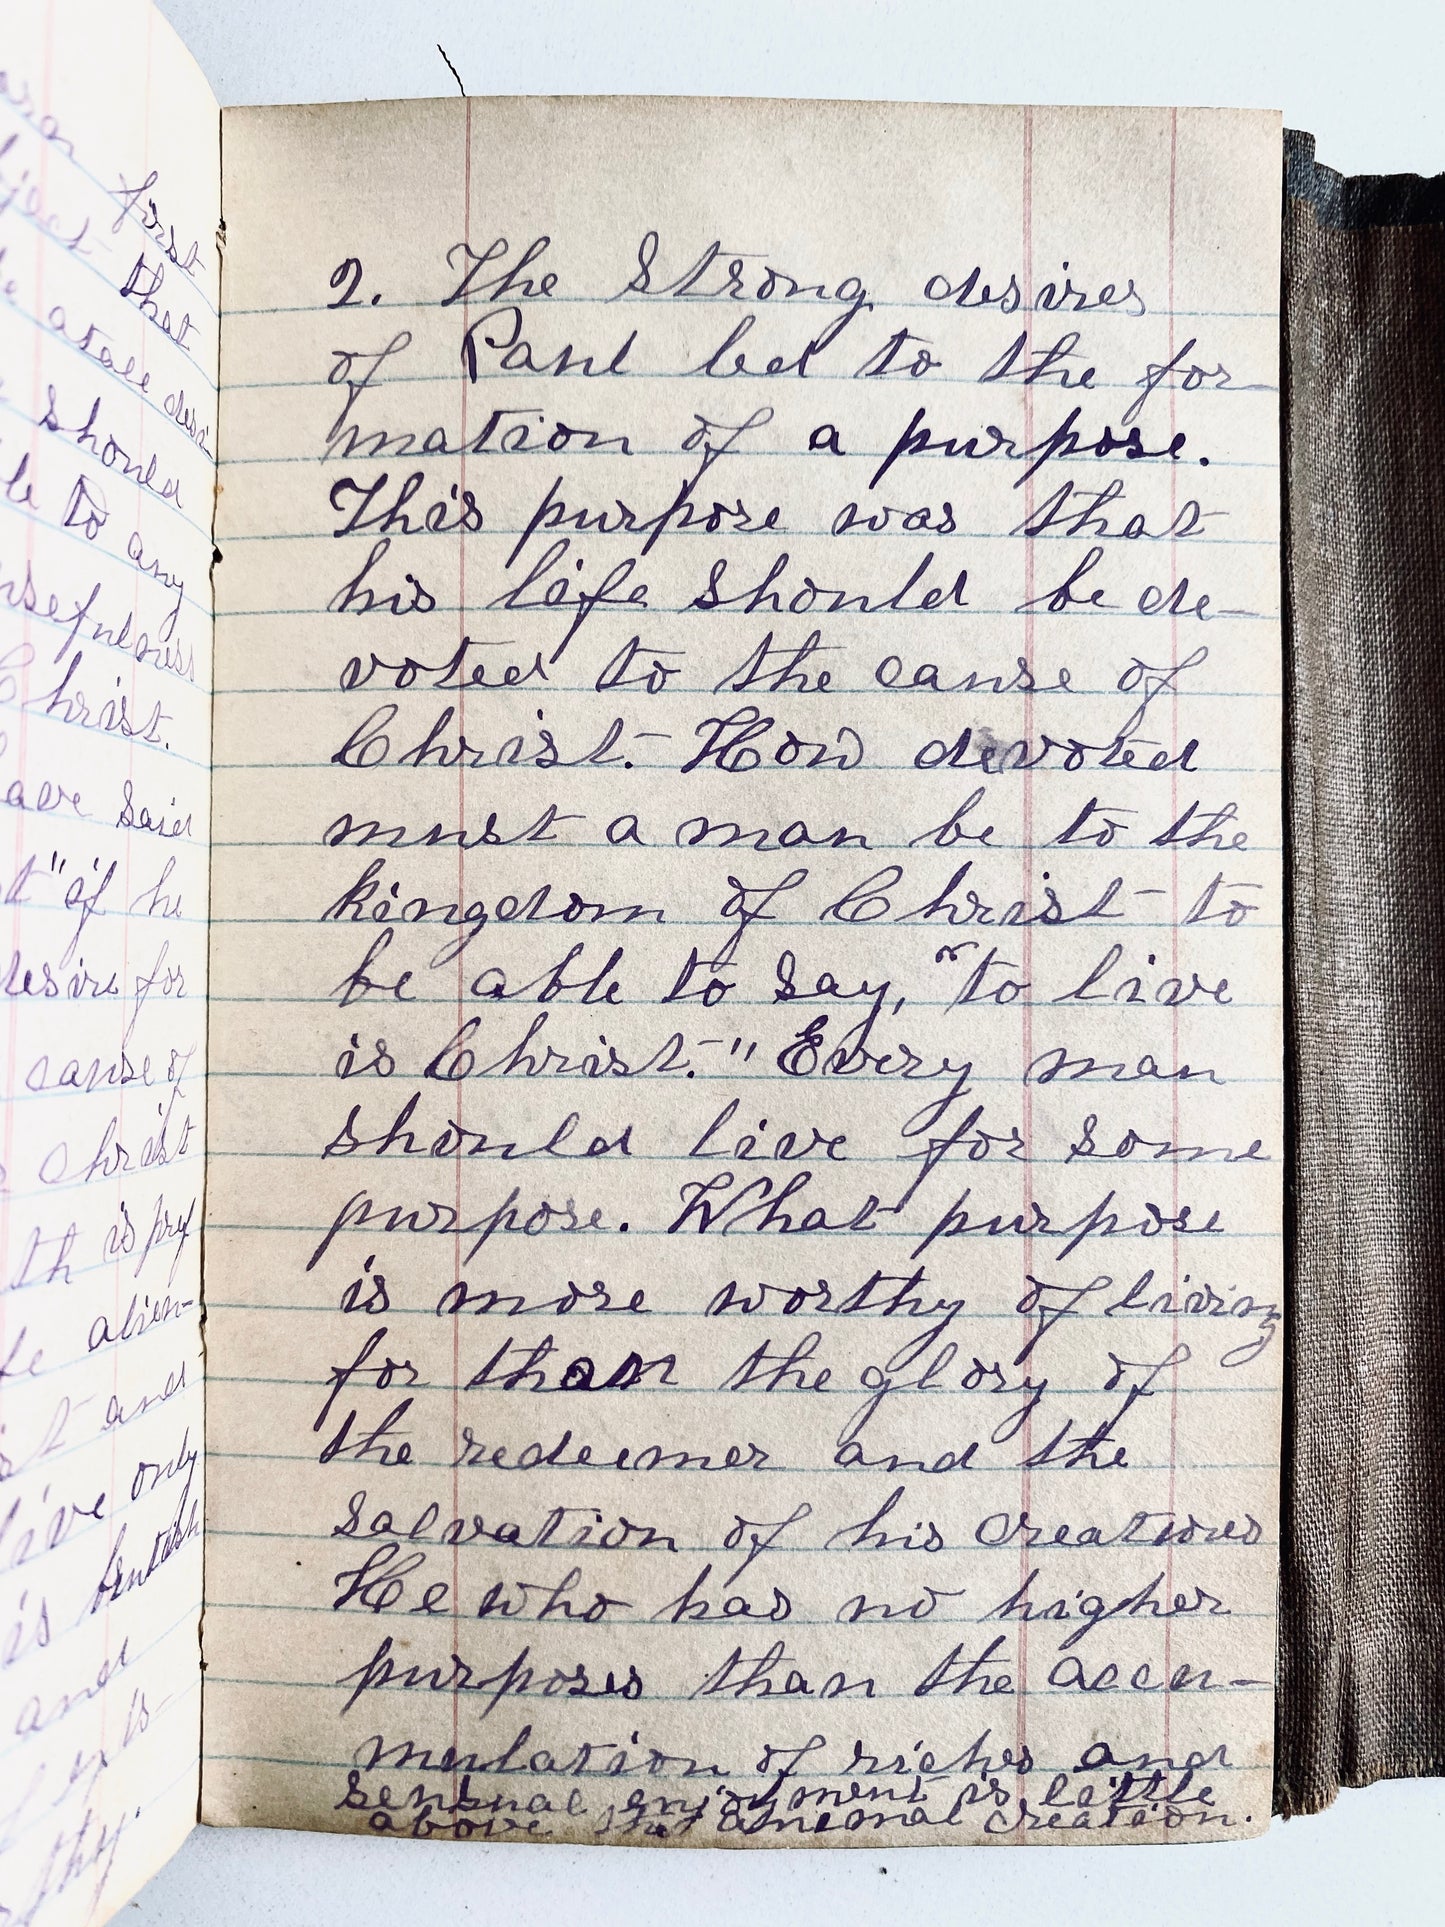 first
that
atall desi-
should
le to any
usefulness
Christ.
ave said
t" if he
desire for
cause of
Christ
th is pref
alien-
and
live only
is
and
is
2. The Strong desires
of Paul led to the for-
mation of a purpose.
This purpose was that
his life should be de-
voted to the cause of
Christ. How devoted
must a man be to the
kingdom of Christ to
be able to say, "to live
is Christ." Every man
should live for some
purpose. What purpose
is more worthy of living
for than the glory of
the redeemer and the
salvation of his creatures
He who has no higher
purposes than the accu-
mulation of riches and
sensual enjoyment is little
above the animal creation.